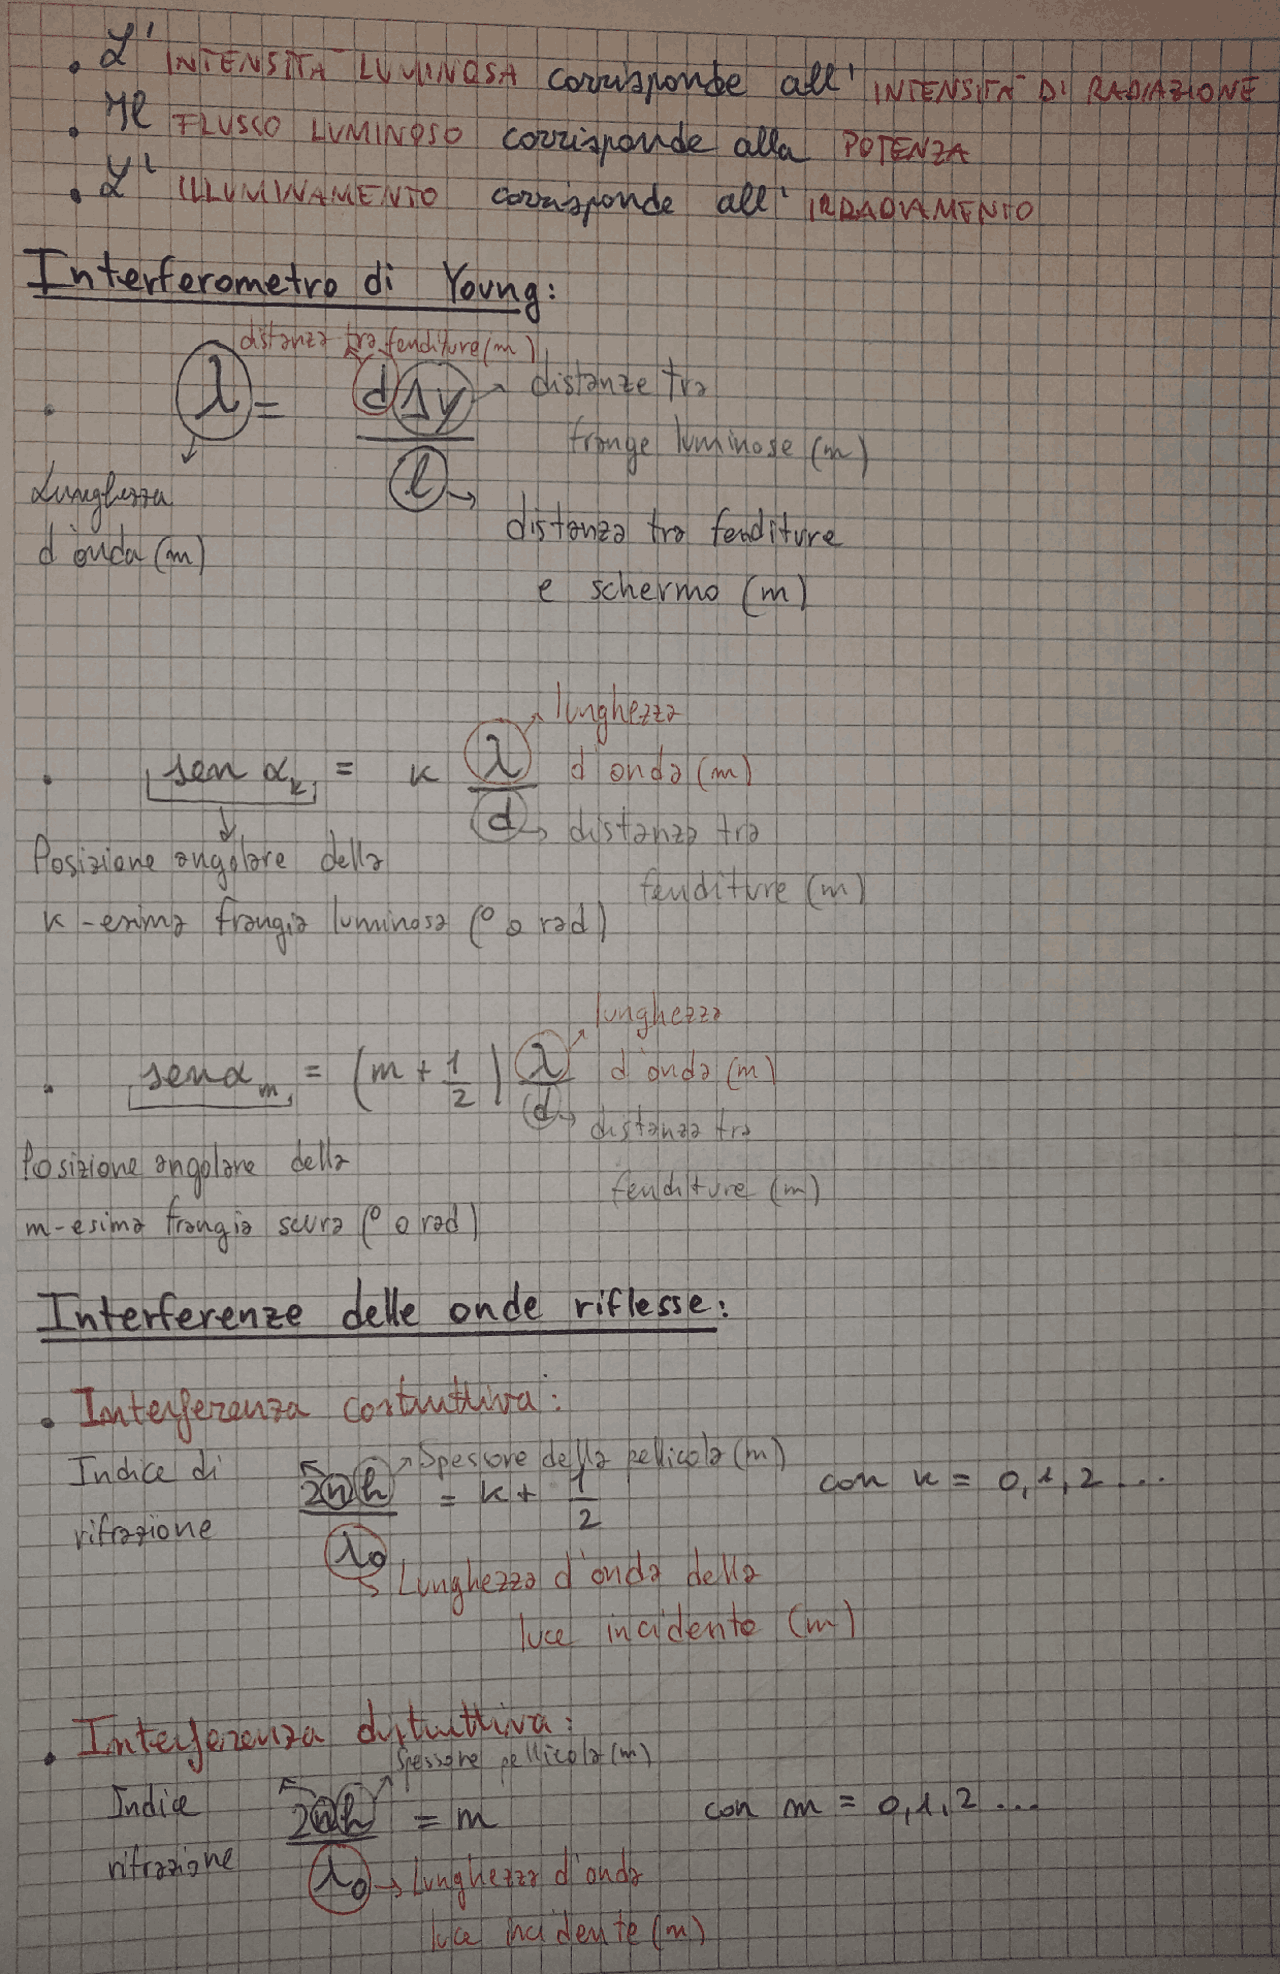 • L' INTENSITÀ LUMINOSA corrisponde all' INTENSITÀ DI RADIAZIONE
• Il FLUSSO LUMINOSO corrisponde alla POTENZA
• L' ILLUMINAMENTO corrisponde all' IRRADIAMENTO
Interferometro di Young:
distanza tra fenditure (m)
• λ = dΔy / l
→ distanze tra
frange luminose (m)
Lunghezza
d'onda (m)
→ distanza tra fenditure
e schermo (m)
lunghezza
• sen αk = k λ/d
d'onda (m)
→ distanza tra
fenditure (m)
Posizione angolare della
k-esima frangia luminosa (° o rad)
lunghezza
• sen αm = (m + 1/2) λ/d
d'onda (m)
→ distanza tra
fenditure (m)
Posizione angolare della
m-esima frangia scura (° o rad)
Interferenze delle onde riflesse:
• Interferenza costruttiva:
Indice di
rifrazione
Spessore della pellicola (m)
2nh/λ0 = k + 1/2 con k = 0,1,2...
Lunghezza d'onda della
luce incidente (m)
• Interferenza distruttiva:
Spessore pellicola (m)
Indice
rifrazione
2nh/λ0 = m con m = 0,1,2...
→ Lunghezza d'onda
luce incidente (m)